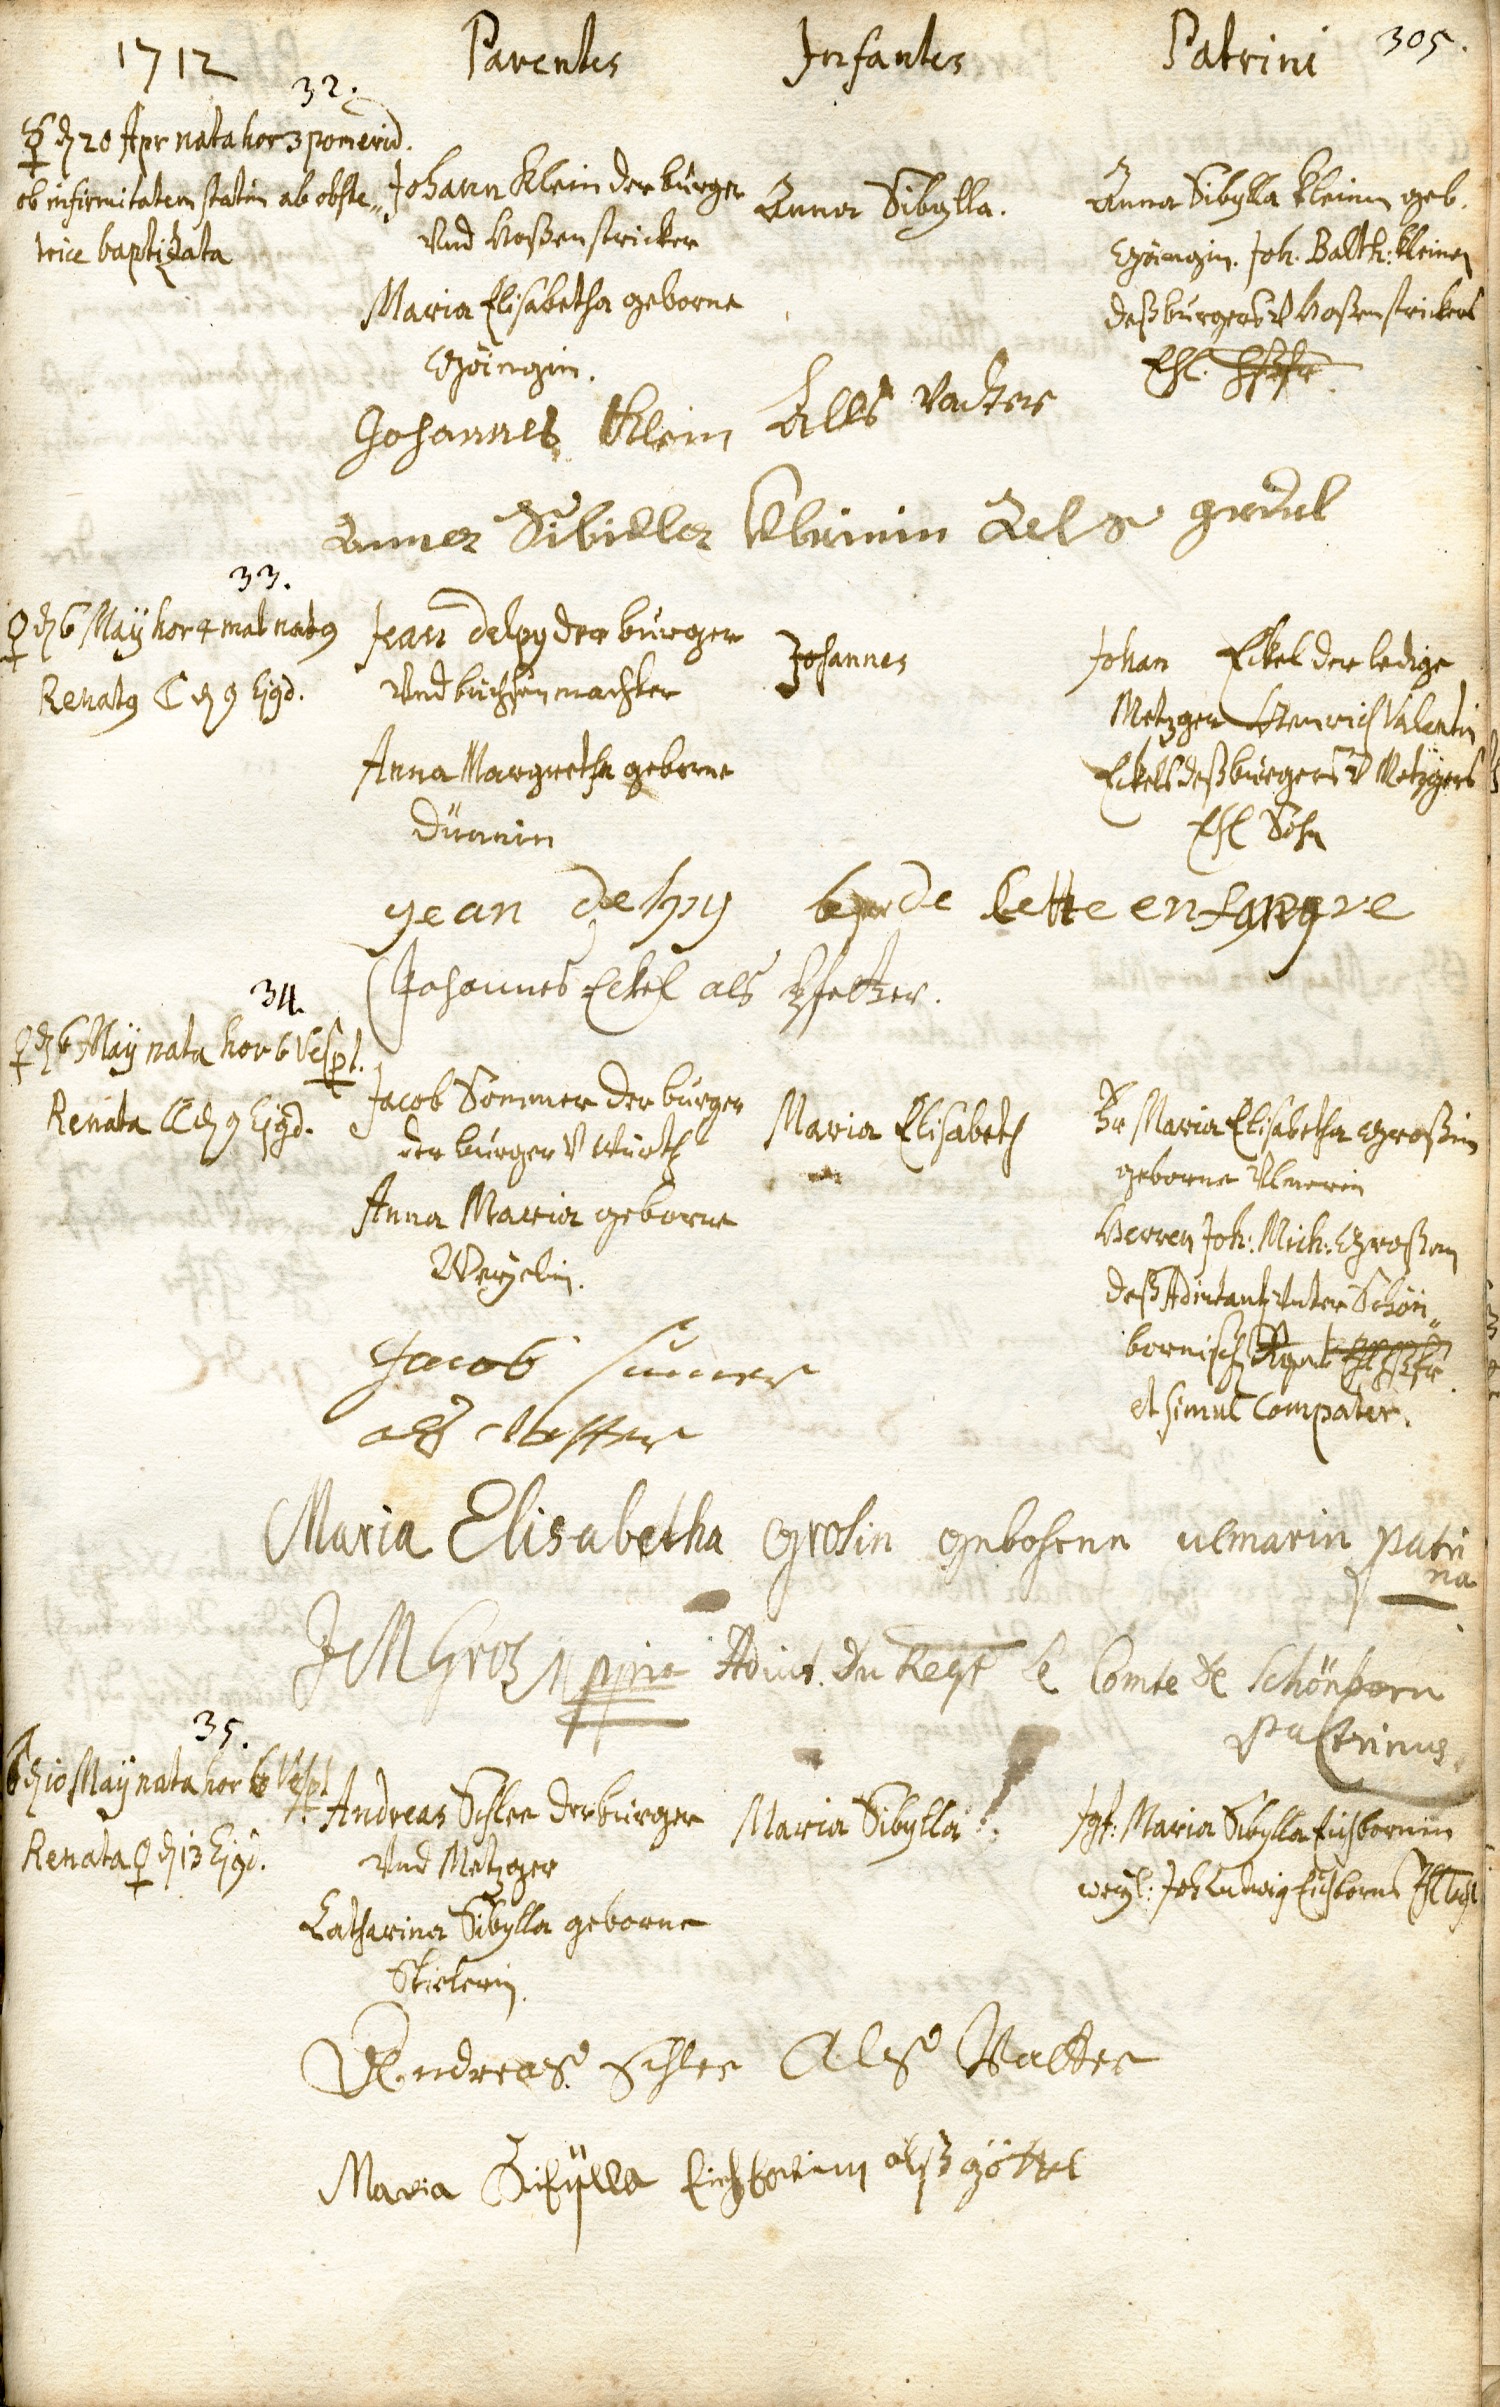 1712 Parentes Infantes Patrini 305.
32.
☿ d 20 Apr nata hor 3 pomerid.
ob infirmitatem statim ab obste„
trice baptizata
Johann Klein der burger
Vnd Hoßenstricker
Maria Elisabetha geborne
Anna Sibylla.
Anna Sibylla Kleinin geb.
Joh. Balth: Kleinen
deß burgers V Hoßenstrickers
Ehl.
Johannes Klein Alls Vatter
Anna Sibilla Kleinin Als
33.
♀ d 6 Maÿ hor 4 mat natq
Renatq ☾ d 9 Ejusd.
Jean Delpy der burger
Vnd büchsenmacher
Anna Margretha geborne
Johannes
Johan Eckel der ledige
Metzger Henrich Valentin
Eckels deß burgers V Metzgers
Ehl Sohn
jean delpy
Johannes Eckel als Pfetter.
34.
♀ d 6 Maÿ nata hor 6 Vesp.
Renata ☾ d 9 Ejusd.
Jacob Sommer der burger
der burger V Würth
Anna Maria geborne
Maria Elisabeth
Fr Maria Elisabetha Großin
geborne Vlmerin
Herren Joh: Mich: Großen
deß Adiutant Vnter Schön„
bornisch
et simul Compater.
Jacob
als Vatter
Maria Elisabetha grosin gebohrne ulmarin patri
na
JM Gros Adiut. Du Regt le Comte de Schönborn
patrinus.
35.
d 10 Maÿ nata hor 6 Vesp.
Renata ♀ d 13 Ejusd.
Andreas Schlee der burger
Vnd Metzger
Catharina Sibylla geborne
Maria Sibylla
Jgf: Maria Sibylla Eichbornin
weyl: Joh Ludwig Eichborns
Andreas Schlee Als Vatter
Maria Sibÿlla Eichbornin alß göttel